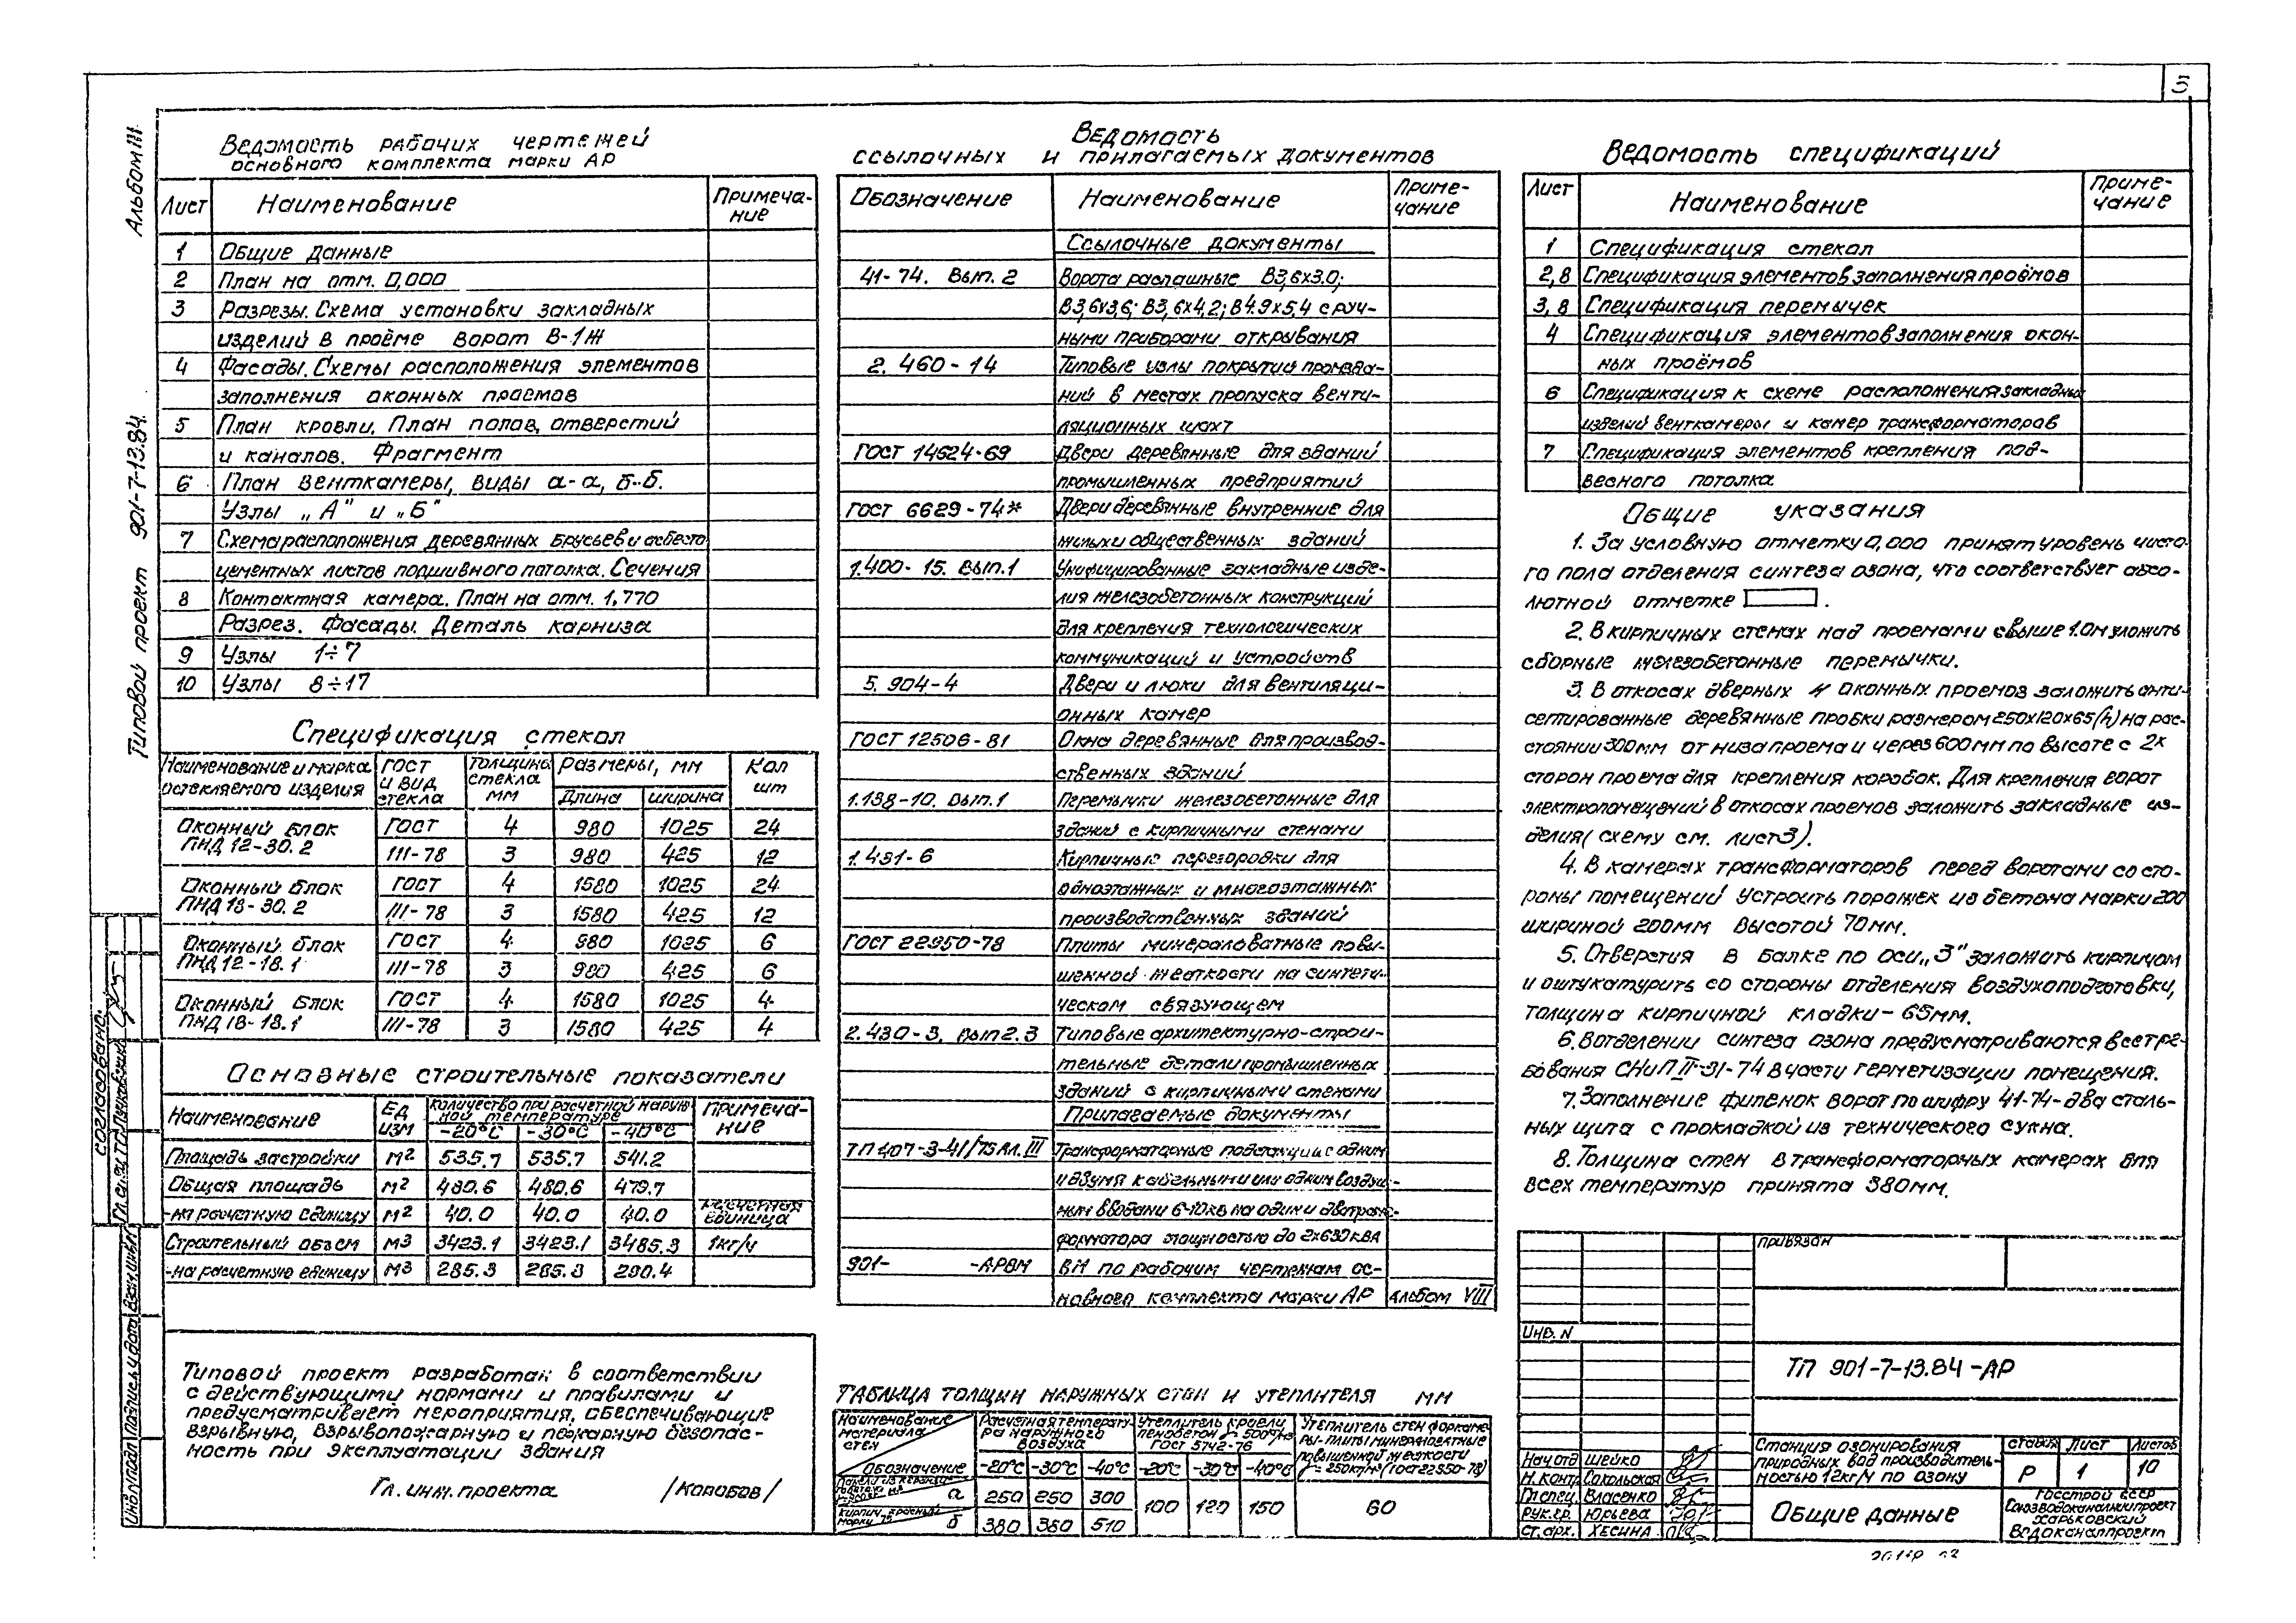 5
Альбом III
Типовой проект 901-7-13.84.
Ведомость рабочих чертежей
основного комплекта марки АР
Лист Наименование Примеча-
ние
1 Общие данные
2 План на отм. 0,000
3 Разрезы. Схема установки закладных
изделий в проёме ворот В-1Ж
4 Фасады. Схемы расположения элементов
заполнения оконных проемов
5 План кровли. План полов, отверстий
и каналов. Фрагмент
6 План венткамеры, виды а-а, Б-Б.
Узлы „А" и „Б"
7 Схема расположения деревянных брусьев и асбесто
цементных листов подшивного потолка. Сечения
8 Контактная камера. План на отм. 1,770
Разрез. Фасады. Деталь карниза
9 Узлы 1÷7
10 Узлы 8÷17
Спецификация стекол
Наименование и марка остекляемого изделия ГОСТ и вид стекла Толщина стекла мм Размеры, мм Кол шт
Длина ширина
Оконный блок ПНД 12-30.2 ГОСТ 4 980 1025 24
III-78 3 980 425 12
Оконный блок ПНД 18-30.2 ГОСТ 4 1580 1025 24
III-78 3 1580 425 12
Оконный блок ПНД 12-18.1 ГОСТ 4 980 1025 6
III-78 3 980 425 6
Оконный блок ПНД 18-18.1 ГОСТ 4 1580 1025 4
III-78 3 1580 425 4
Основные строительные показатели
Наименование Ед изм Количество при расчетной наруж ной температуре Примеча-
ние
-20°С -30°С -40°С
Площадь застройки м² 535.7 535.7 541.2
Общая площадь м² 480.6 480.6 479.7
-на расчетную единицу м² 40.0 40.0 40.0 расчетная единица
Строительный объем м3 3423.1 3423.1 3485.3 1кг/ч
-на расчетную единицу м3 285.3 285.3 290.4
Типовой проект разработан в соответствии
с действующими нормами и правилами и
предусматривает мероприятия, обеспечивающие
взрывную, взрывопожарную и пожарную безопас-
ность при эксплуатации здания
Гл. инж. проекта /Коробов/
Ведомость
ссылочных и прилагаемых документов
Обозначение Наименование Приме-
чание
Ссылочные документы
41-74. Вып. 2 Ворота распашные В3,6х3.0;
В3,6х3,6; В3,6х4,2; В4.9х5,4 с руч-
ными приборами открывания
2. 460-14 Типовые узлы покрытий промзда-
ний в местах пропуска венти-
ляционных шахт
ГОСТ 14624-69 Двери деревянные для зданий
промышленных предприятий
ГОСТ 6629-74* Двери деревянные внутренние для
жилых и общественных зданий
1.400-15. Вып.1 Унифицированные закладные изде-
лия железобетонных конструкций
для крепления технологических
коммуникаций и устройств
5. 904-4 Двери и люки для вентиляци-
онных камер
ГОСТ 12506-81 Окна деревянные для производ-
ственных зданий
1.138-10. Вып.1 Перемычки железобетонные для
зданий с кирпичными стенами
1.431-6 Кирпичные перегородки для
одноэтажных и многоэтажных
производственных зданий
ГОСТ 22950-78 Плиты минераловатные повы-
шенной жесткости на синтети-
ческом связующем
2.430-3. вып 2.3 Типовые архитектурно-строи-
тельные детали промышленных
зданий с кирпичными стенами
Прилагаемые документы
ТП 407-3-41/75 Ал. III Трансформаторные подстанции с одним
и двумя кабельными или одним воздуш-
ным вводами 6-10кв на один и два транс-
форматора мощностью до 2х630кВА
901- -АРВМ ВМ по рабочим чертежам ос-
новного комплекта марки АР альбом VIII
Таблица толщин наружных стен и утеплителя мм
Наименование материала стен Расчетная температу-
ра наружного воздуха Утеплитель кровли пенобетон γ=500кг/м3 ГОСТ 5742-76 Утеплитель стен форкаме-
ры-плиты минераловатные повышенной жесткости γ=250кг/м³ (ГОСТ 22950-78)
Обозначение -20°С -30°С -40°С -20°С -30°С -40°С
а 250 250 300 100 120 150 60
кирпич красный марки 75 б 380 380 510
Ведомость спецификаций
Лист Наименование Приме-
чание
1 Спецификация стекол
2,8 Спецификация элементов заполнения проёмов
3,8 Спецификация перемычек
4 Спецификация элементов заполнения окон-
ных проёмов
6 Спецификация к схеме расположения закладных
изделий венткамеры и камер трансформаторов
7 Спецификация элементов крепления под-
весного потолка
Общие указания
1. За условную отметку 0,000 принят уровень чисто-
го пола отделения синтеза озона, что соответствует абсо-
лютной отметке .
2. В кирпичных стенах над проемами свыше 1.0м уложить
сборные железобетонные перемычки.
3. В откосах дверных и оконных проемов заложить анти-
септированные деревянные пробки размером 250х120х65(h) на рас-
стоянии 300мм от низа проема и через 600мм по высоте с 2х
сторон проема для крепления коробок. Для крепления ворот
электропомещений в откосах проемов заложить закладные из-
делия (схему см. лист 3).
4. В камерах трансформаторов перед воротами со сто-
роны помещений устроить порожек из бетона марки 200
шириной 200мм высотой 70мм.
5. Отверстия в балке по оси „3" заложить кирпичом
и оштукатурить со стороны отделения воздухоподготовки,
толщина кирпичной кладки-65мм.
6. В отделении синтеза озона предусматриваются все тре-
бования СНиП II-31-74 в части герметизации помещения.
7. Заполнение филенок ворот по шифру 41-74-два сталь-
ных щита с прокладкой из технического сукна.
8. Толщина стен в трансформаторных камерах для
всех температур принята 380мм.
привязан
Инв. N
ТП 901-7-13.84-АР
Нач отд Шейко
Н. контр Сокольская
Гл спец. Власенко
Рук. гр. Юрьева
Ст. арх. Хесина
Станция озонирования
природных вод производитель-
ностью 12кг/ч по озону
Стадия Лист Листов
Р 1 10
Общие данные
Госстрой СССР
Союзводоканалниипроект
Харьковский
Водоканалпроект
Согласовано:
Гл. спец. ТО
Инв. N подл. Подпись и дата Взам. инв. N